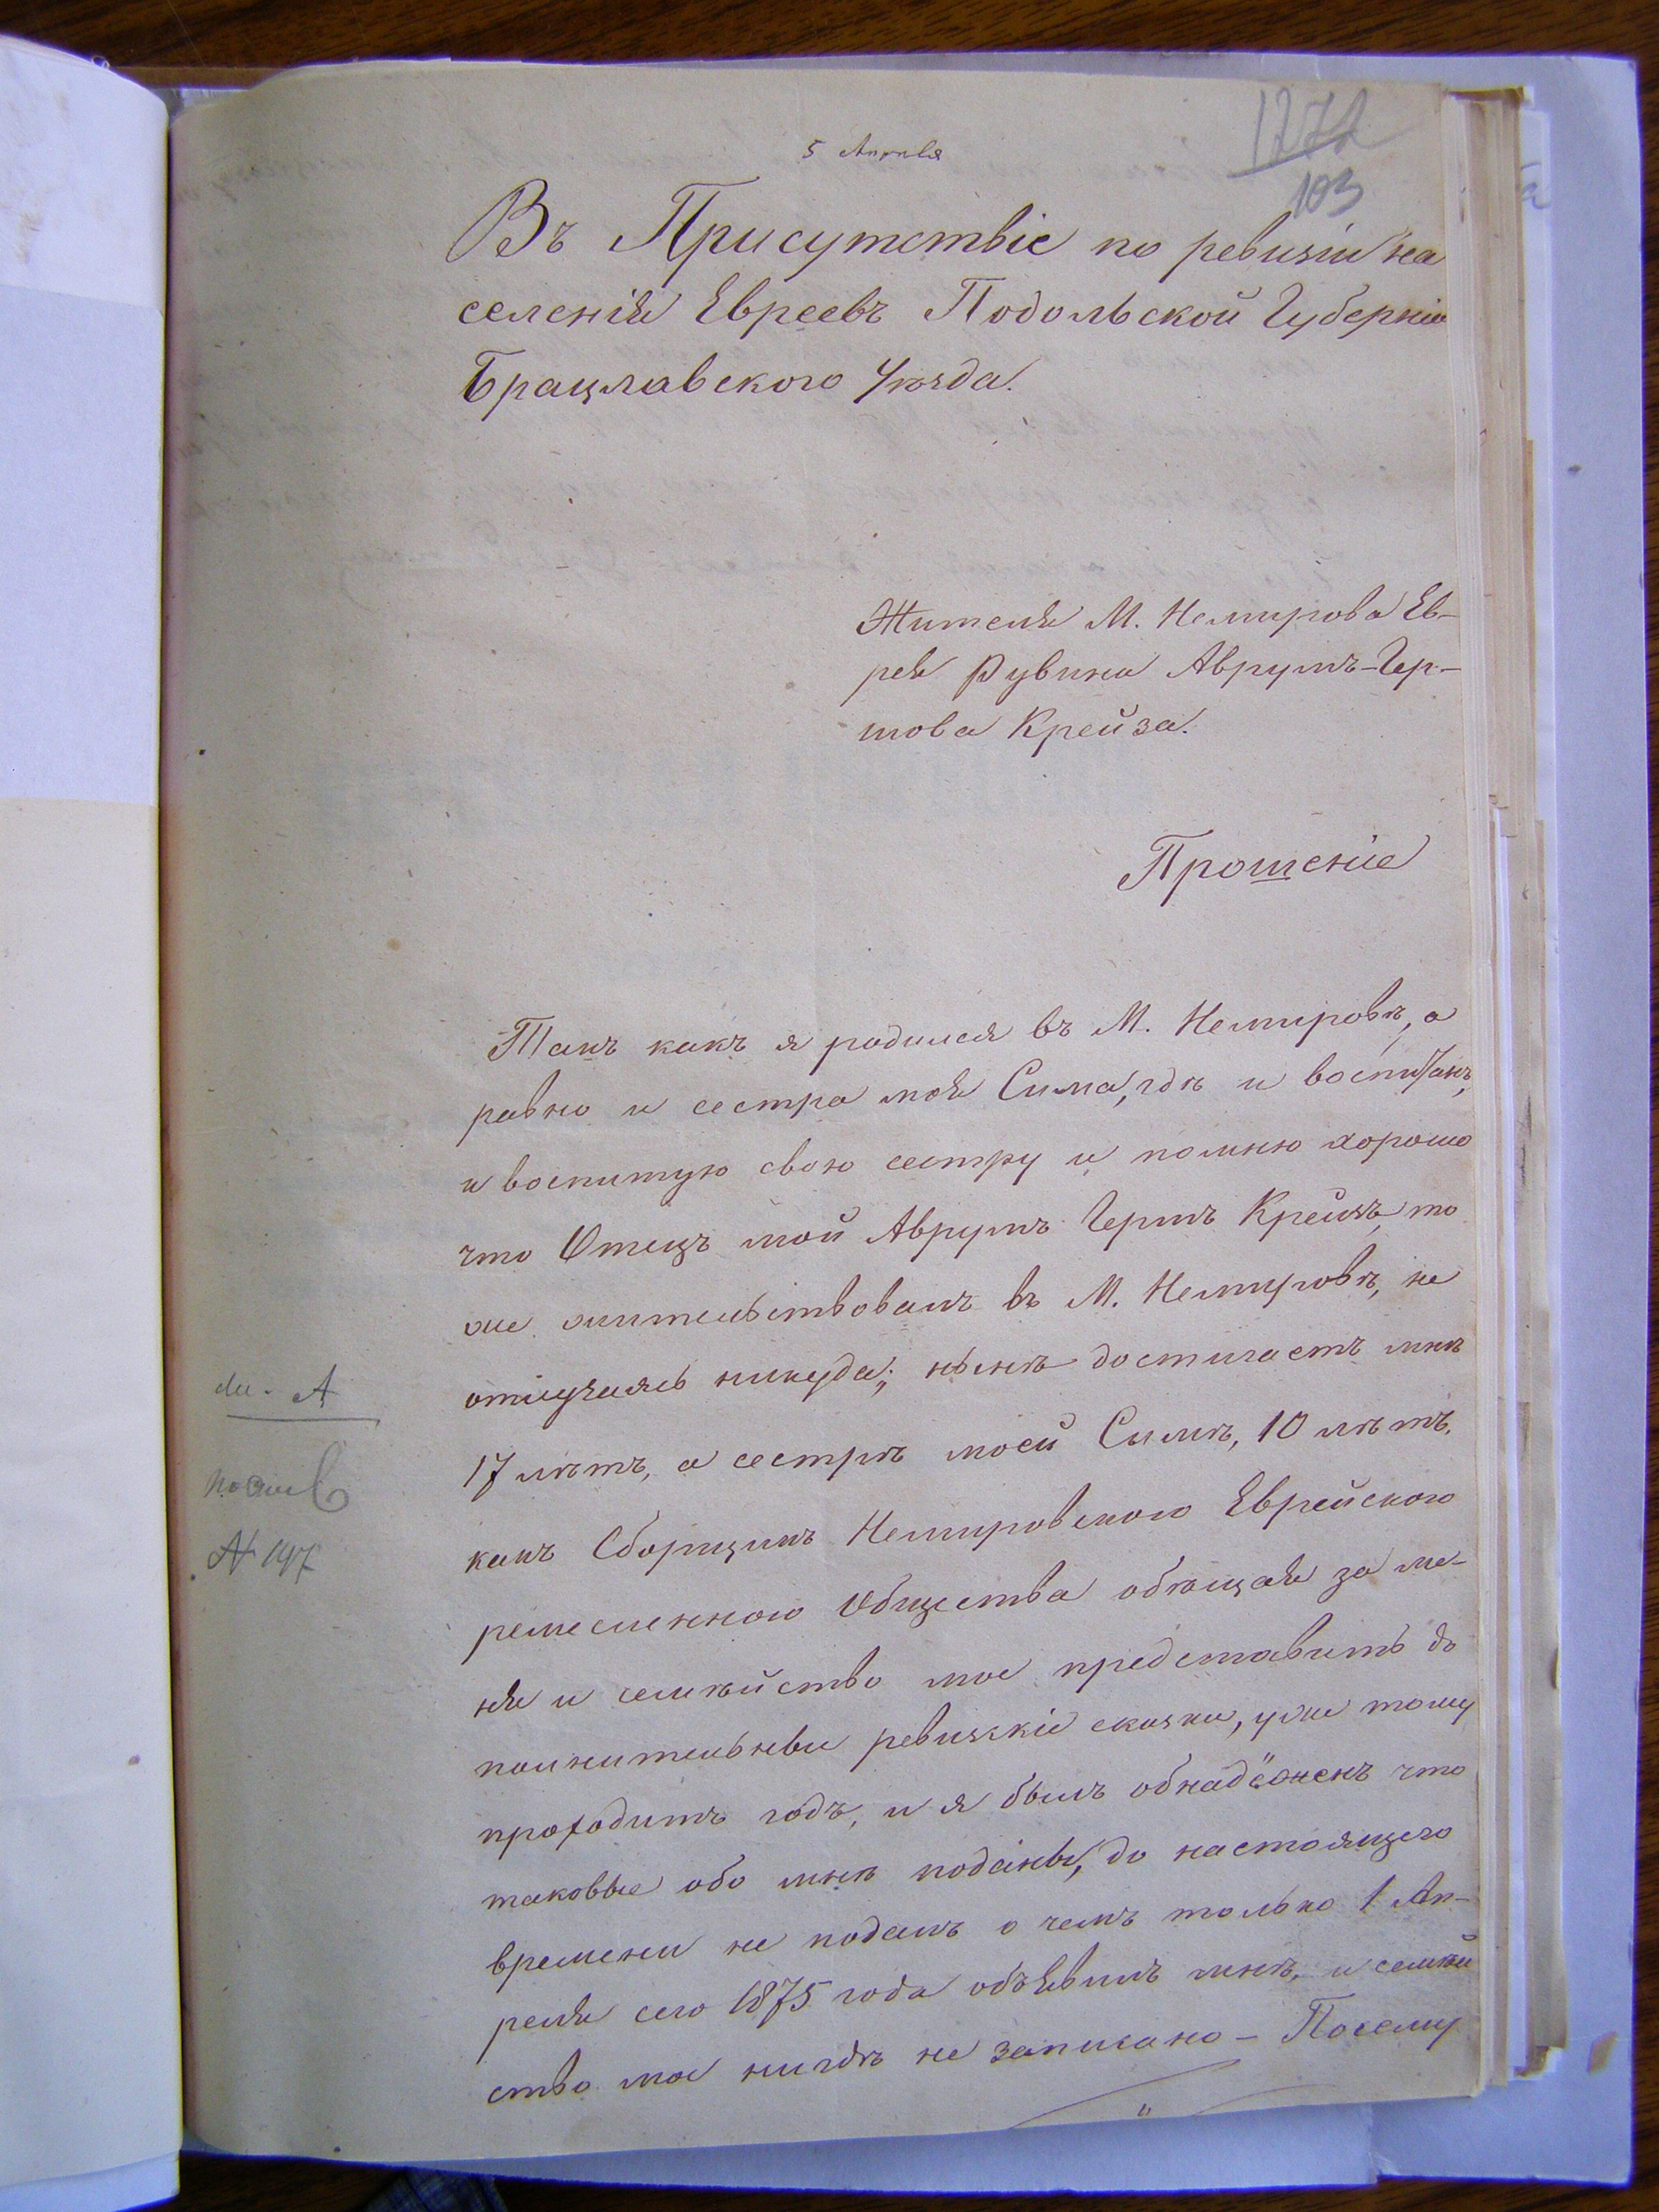 5 Апреля
1272
103
Въ Присутствіе по ревизіи на
селенія Евреевъ Подольской Губерніи
Брацлавского Уѣзда.
Жителя М. Немирова Ев-
рея Рувина Аврумъ-Гер-
шова Крейза.
Прошеніе
Такъ какъ я родился въ М. Немировѣ, а
равно и сестра моя Сима, гдѣ и воспитанъ,
и воспитую свою сестру и помню хорошо
что Отецъ мой Аврумъ Гершъ Крейзъ, то
же жительствовалъ въ М. Немировѣ, не
отлучаясь никуда; нынѣ достигаетъ мнѣ
17 лѣтъ, а сестрѣ моей Симѣ, 10 лѣтъ.
какъ Сборщикъ Немировского Еврейского
ремесленного Общества обѣщая за ме-
ня и семѣйство мое представить до
полнительные ревизскіе сказки, уже тому
проходитъ годъ, и я былъ обнадёженъ что
таковые обо мнѣ поданы, до настоящего
времени не подалъ о чемъ только 1 Ап-
реля сего 1875 года объявилъ мнѣ, и семѣй
ство мое нигдѣ не записано - Посему
А
№ 197